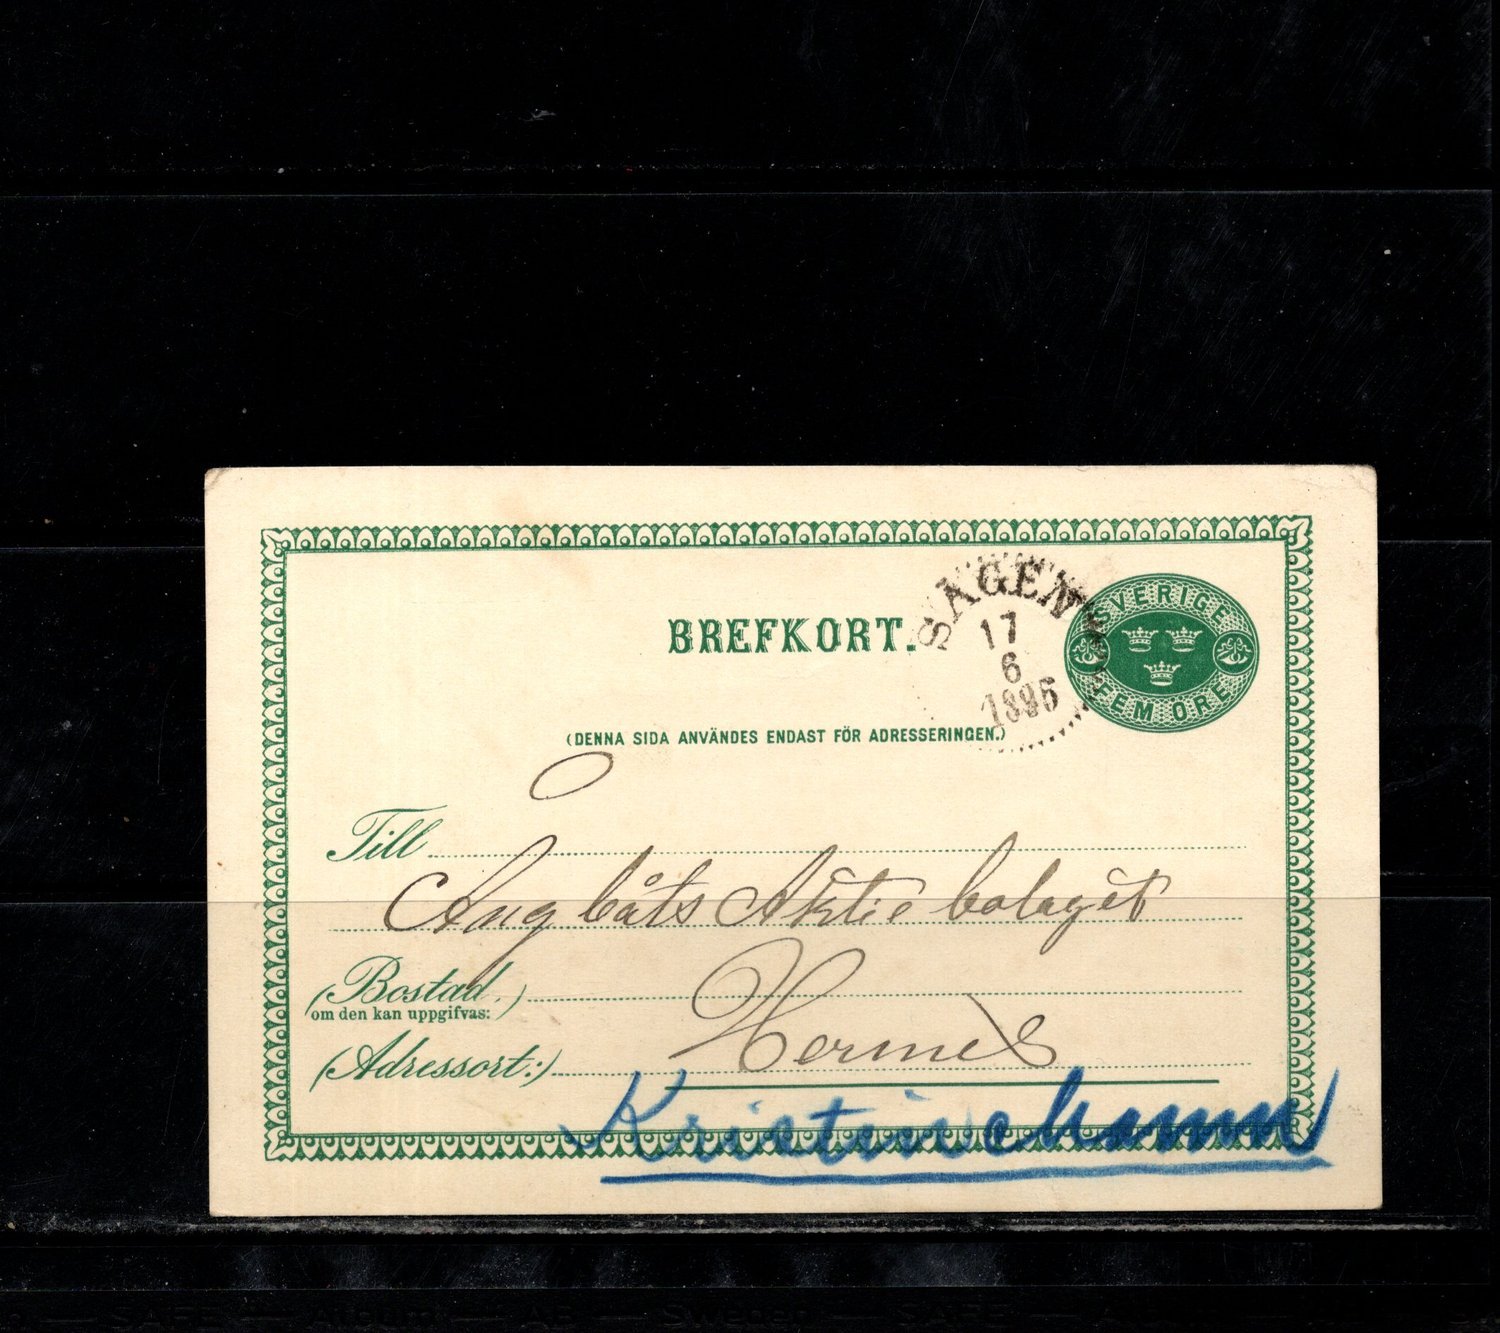 BREFKORT.
SAGEN
17
6
1895
SVERIGE
FEM ÖRE
(DENNA SIDA ANVÄNDES ENDAST FÖR ADRESSERINGEN.)
Till
Ångbåts Aktiebolaget
(Bostad.)
om den kan uppgifvas:
Hermes
(Adressort:)
Kristinehamn